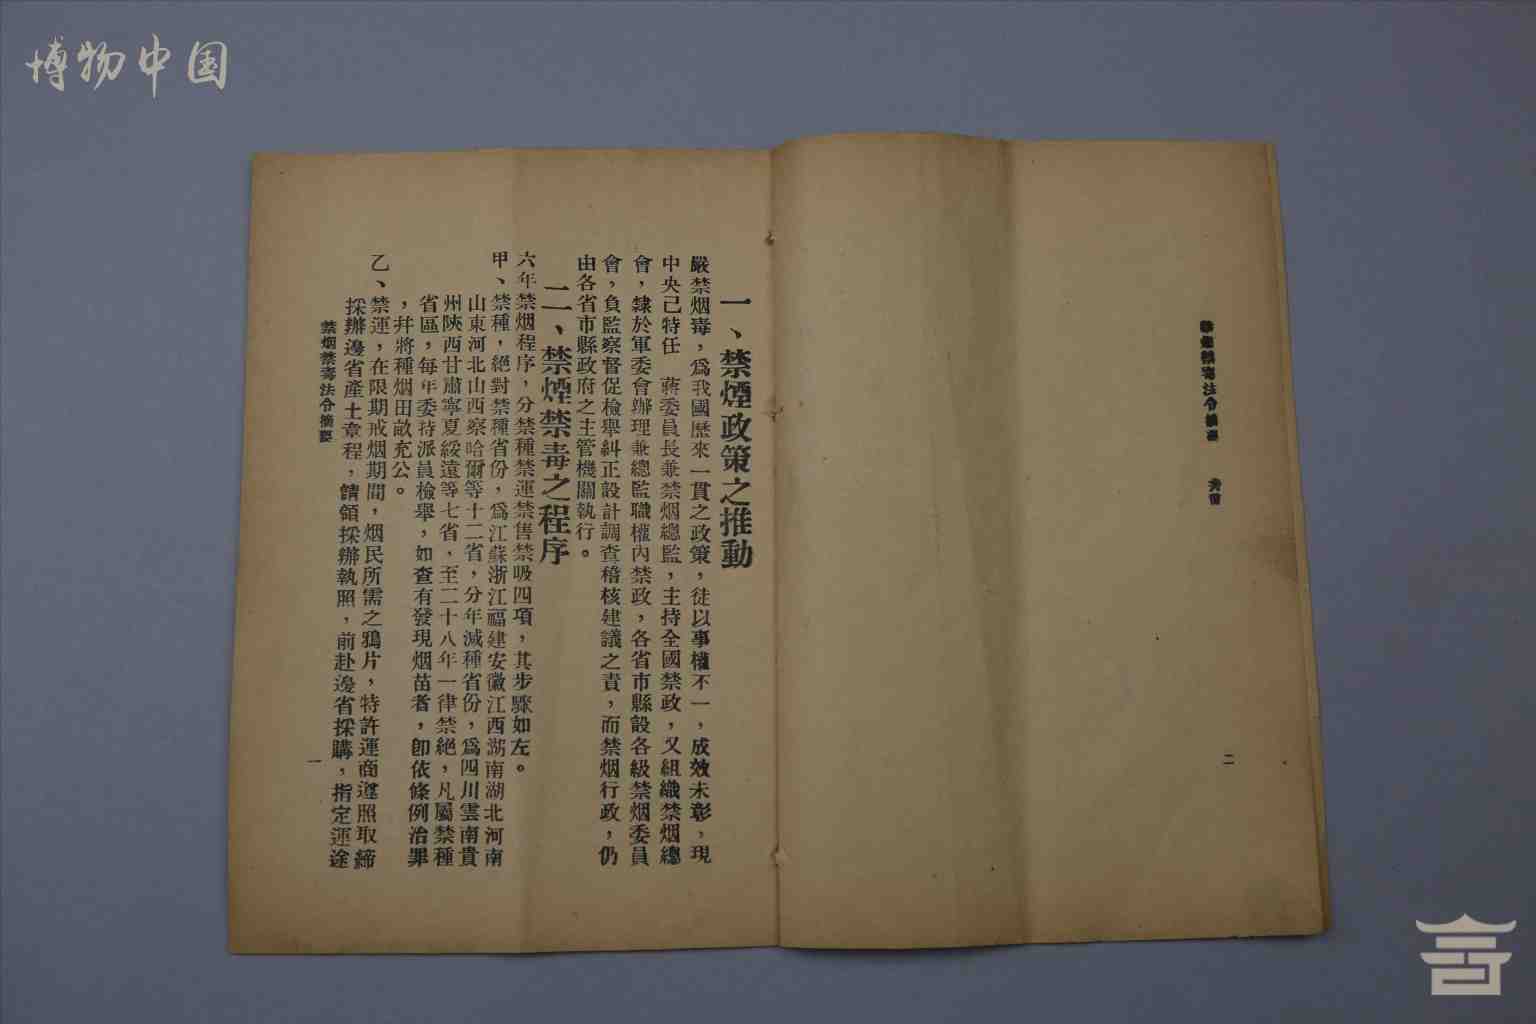 博物中国
禁烟禁毒法令摘要
二
一、禁煙政策之推動
嚴禁烟毒，爲我國歷來一貫之政策，徒以事權不一，成效未彰，現
中央已特任　蔣委員長兼禁烟總監，主持全國禁政，又組織禁烟總
會，隸於軍委會辦理兼總監職權內禁政，各省市縣設各級禁烟委員
會，負監察督促檢舉糾正設計調查稽核建議之責，而禁烟行政，仍
由各省市縣政府之主管機關執行。
二、禁煙禁毒之程序
六年禁烟程序，分禁種禁運禁售禁吸四項，其步驟如左。
甲、禁種，絕對禁種省份，爲江蘇浙江福建安徽江西湖南湖北河南
山東河北山西察哈爾等十二省，分年減種省份，爲四川雲南貴
州陝西甘肅寧夏綏遠等七省，至二十八年一律禁絕，凡屬禁種
省區，每年委特派員檢舉，如查有發現烟苗者，卽依條例治罪
，幷將種烟田畝充公。
乙、禁運，在限期戒烟期間，烟民所需之鴉片，特許運商遵照取締
採辦邊省產土章程，請領採辦執照，前赴邊省採購，指定運途
禁烟禁毒法令摘要
一